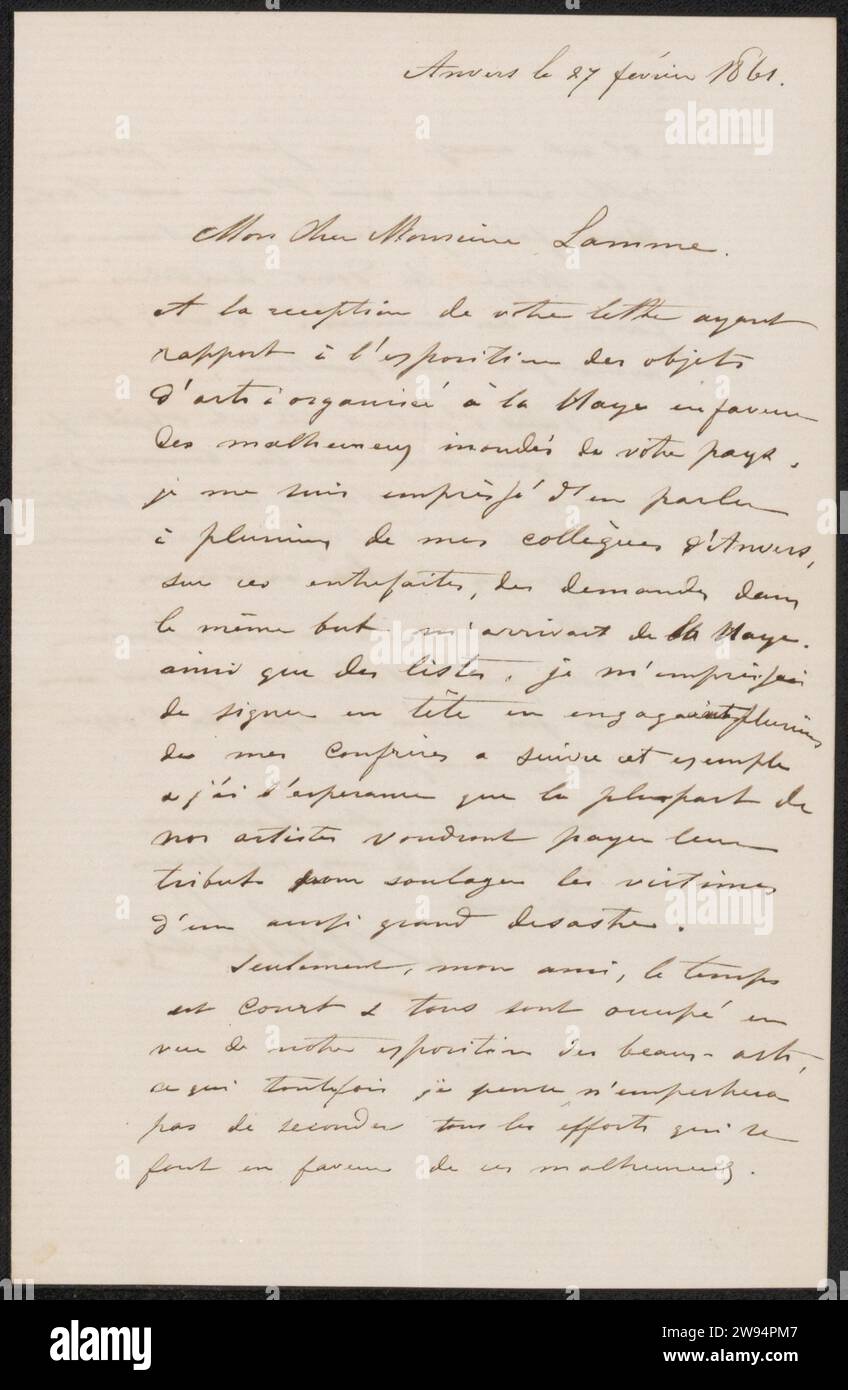 Anvers le 27 février 1861.
Mon Cher Monsieur Lamme.
A la reception de votre lettre ayant
rapport à l'exposition des objets
d'arts organisé à la Haye en faveur
des malheureux inondés de votre pays,
je me suis empressé d'en parler
à plusieurs de mes collègues d'Anvers,
sur ces entrefaites, des demandes dans
le même but m'arrivait de la Haye.
ainsi que des listes, je m'empressai
de signer en tête en engageant plusieurs
de mes confrères a suivre cet exemple
& j'ai l'esperance que la plupart de
nos artistes voudront payer leur
tribut pour soulager les victimes
d'un aussi grand desastre.
Seulement, mon ami, le temps
est court & tous sont occupé en
vue de notre exposition des beaux-arts,
ce qui toutefois je pense n'empechera
pas de seconder tous les efforts qui se
font en faveur de ces malheureux.
alamy
Image ID: 2W94PM7
www.alamy.com